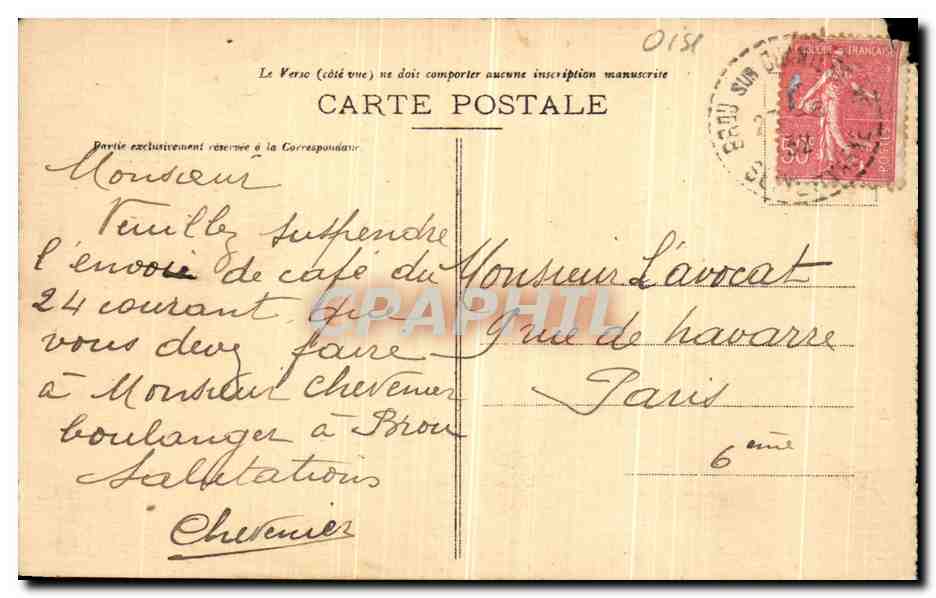 0151
Le Verso (côté vue) ne doit comporter aucune inscription manuscrite
CARTE POSTALE
Partie exclusivement réservée à la Correspondance
BROU SUR CHANTEREINE
FRANÇAISE
50
POSTES
Monsieur
Veuillez suspendre
l'envoie de café du
24 courant que
vous devez faire
à Monsieur Chevenier
boulanger à Brou
Salutations
Chevenier
Monsieur L'avocat
9 rue de havarre
Paris
6eme
CPAPHIL